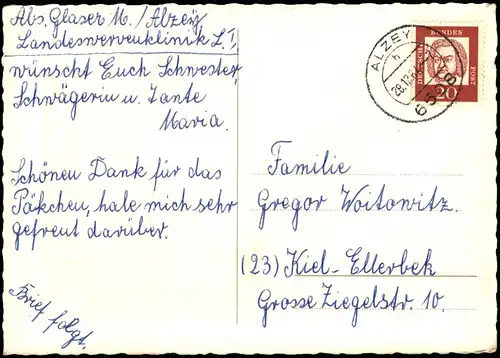 Abs. Glaser M./Alzey
Landesnervenklinik L. I,
wünscht Euch Schwester,
Schwägerin u. Tante
Maria.
Schönen Dank für das
Päkchen, habe mich sehr
gefreut darüber.
Brief folgt.
ALZEY
h
6508
DEUTSCHE BUNDES POST
20
Familie
Gregor Woitowitz.
(23) Kiel-Ellerbek
Grosse Ziegelstr. 10.